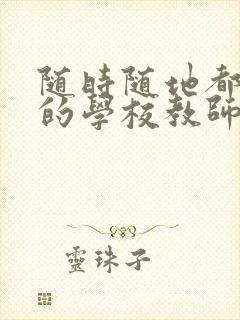 随時随地都
的學校教師
靈珠子